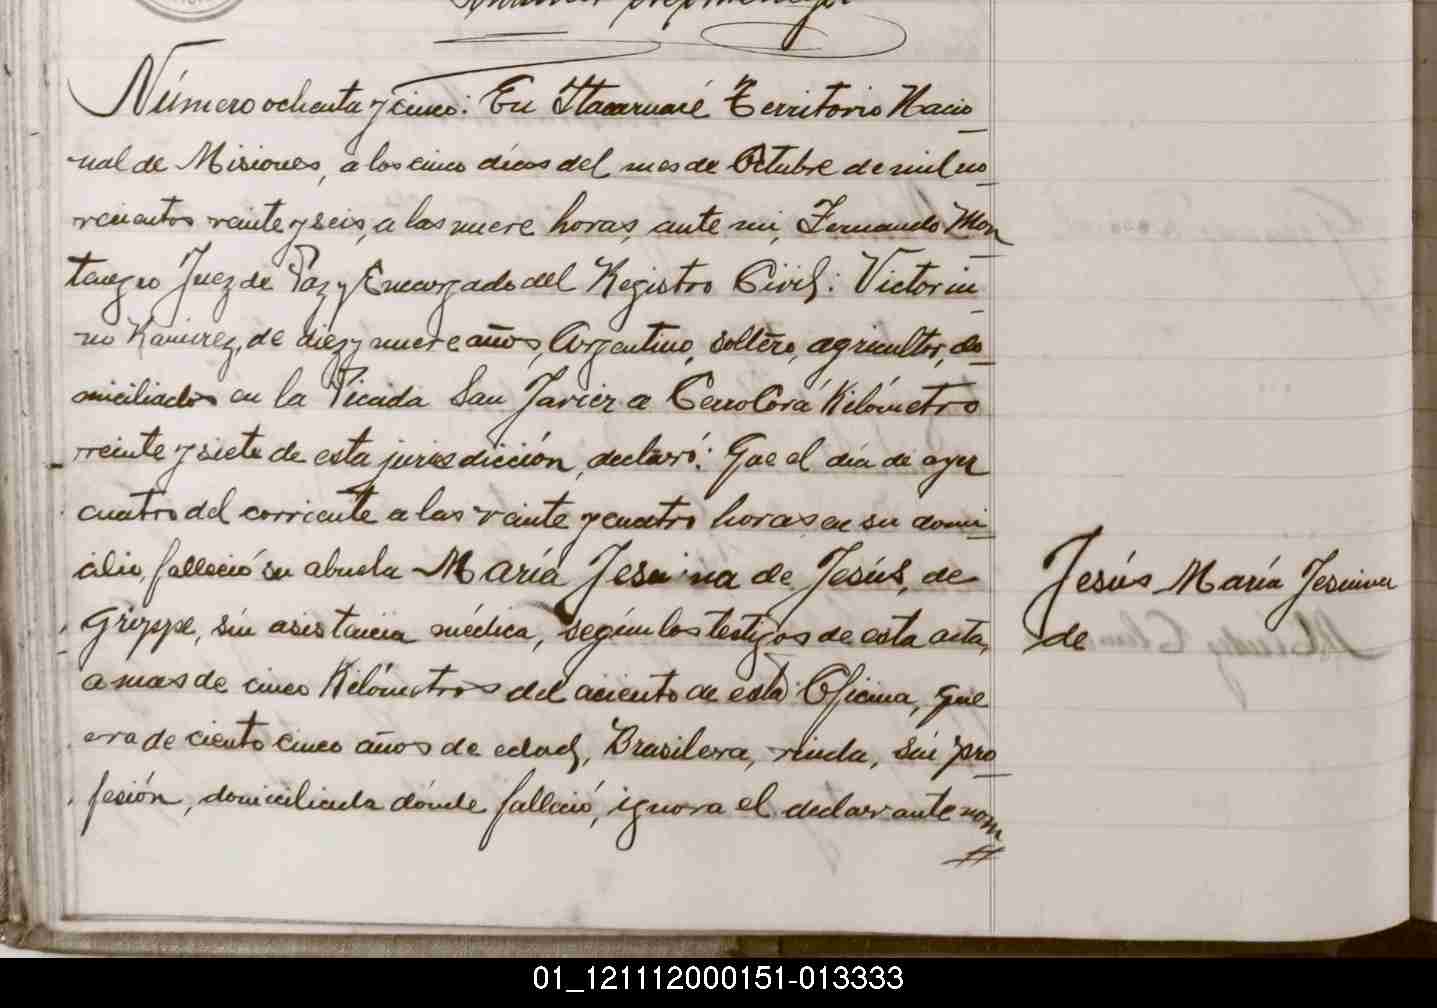 Número ochenta y cinco: En Itacaruaré Territorio Nacio-
nal de Misiones, a los cinco dias del mes de Octubre de mil no-
vecientos veinte y seis, a las nueve horas, ante mi, Fernando Mon-
tenegro Juez de Paz y Encargado del Registro Civil: Victorin-
no Ramirez, de diez y nueve años, Argentino, soltero, agricultor, do-
miciliado en la Picada San Javier a Cerro Corá Kilómetro
veinte y siete de esta jurisdicción, declaró: Que el día de ayer
cuatro del corriente a las veinte y cuatro horas en su domi-
cilio, falleció su abuela María Jesuina de Jesús, de
Grippe, sin asistencia médica, según los testigos de esta acta,
a mas de cinco Kilómetros del aciento de esta Oficina, que
era de ciento cinco años de edad, Brasilera, viuda, sin pro-
fesión, domiciliada dónde falleció, ignora el declarante nom
Jesús María Jesuina
de
01_121112000151-013333